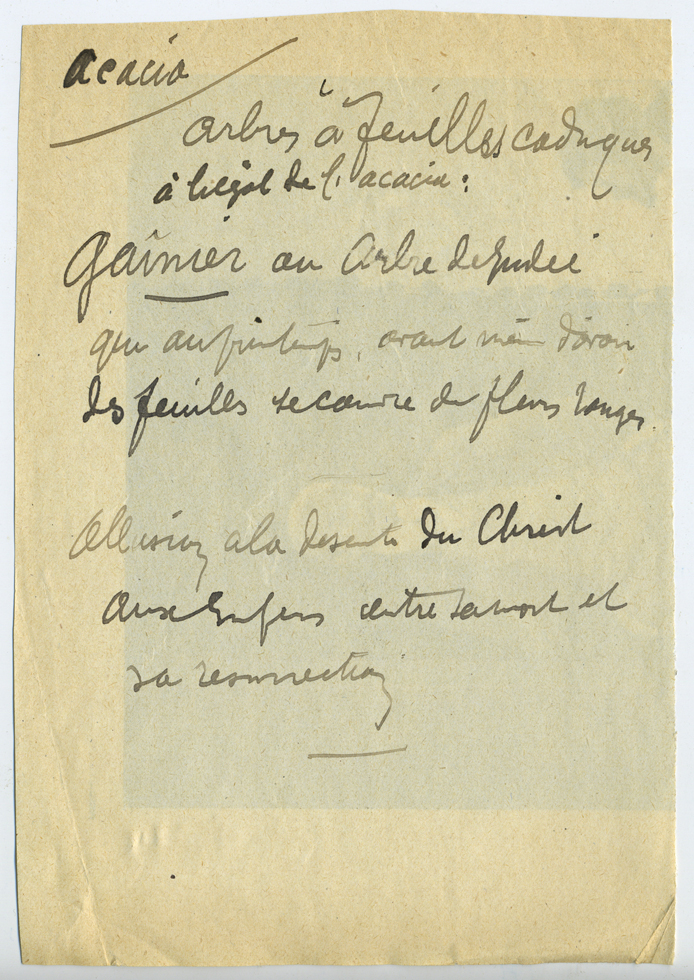 acacia
arbres à feuilles caduques
à l'égal de l'acacia :
Gaînier ou Arbre de Judée
qui au printemps, avant même d'avoir
des feuilles se couvre de fleurs rouges.
Allusion a la descente du Christ
aux Enfers entre sa mort et
sa resurrection